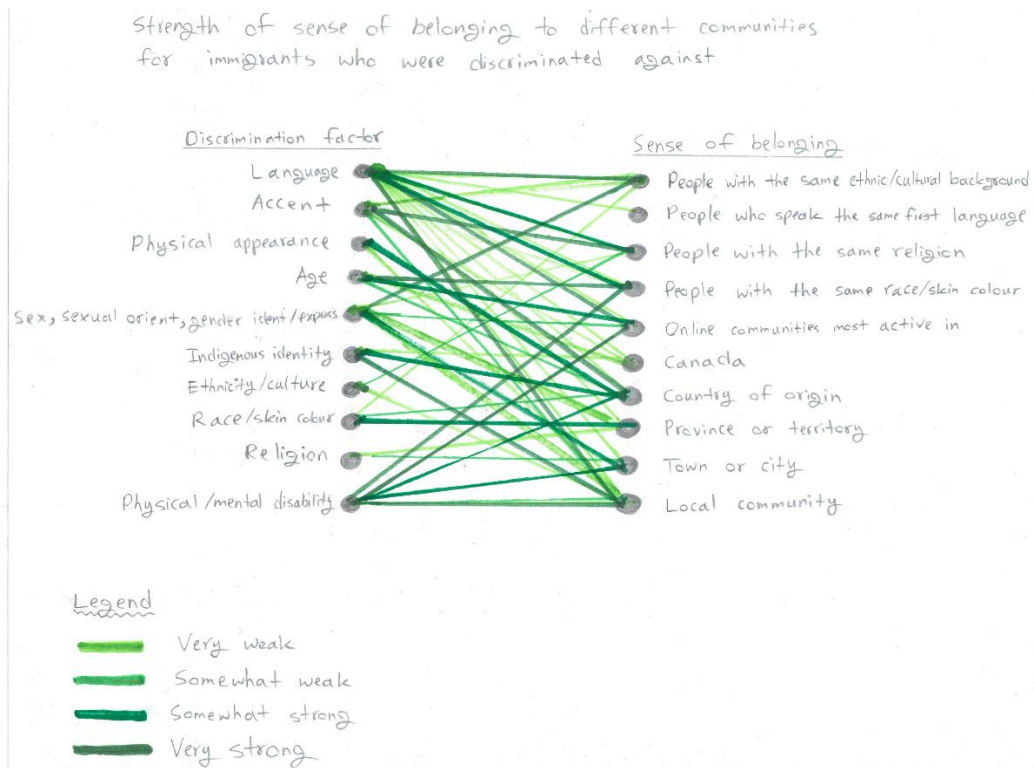 Strength of sense of belonging to different communities
for immigrants who were discriminated against
Discrimination factor
Language
Accent
Physical appearance
Age
Sex, sexual orient, gender ident/express
Indigenous identity
Ethnicity/culture
Race/skin colour
Religion
Physical/mental disability
Sense of belonging
People with the same ethnic/cultural background
People who speak the same first language
People with the same religion
People with the same race/skin colour
Online communities most active in
Canada
Country of origin
Province or territory
Town or city
Local community
Legend
Very weak
Somewhat weak
Somewhat strong
Very strong